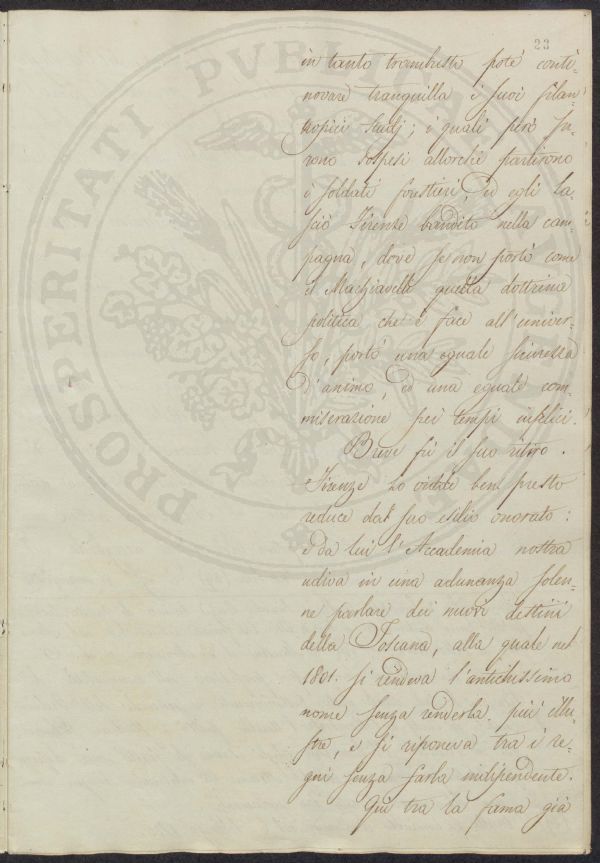 23
in tanto trambusto potè conti-
novare tranquilla i suoi filan-
tropici studj; i quali però fu-
rono sospesi allorchè partirono
i soldati forestieri, ed egli la-
sciò Firenze bandito nella cam-
pagna, dove se non portò come
il Machiavelli quella dottrina
politica che è face all'univer-
so, portò una eguale sicurezza
d'animo, ed una eguale com-
miserazione pei tempi infelici.
Breve fù il suo ritiro.
Firenze lo vidde ben presto
reduce dal suo esilio onorato:
e da lui l'Accademia nostra
udiva in una adunanza solen-
ne parlare dei nuovi destini
della Toscana, alla quale nel
1801. si rendeva l'antichissimo
nome senza renderla più illu-
stre, e si riponeva tra i re-
gni senza farla indipendente.
Quì tra la fama già
PROSPERITATI PVBLICAE